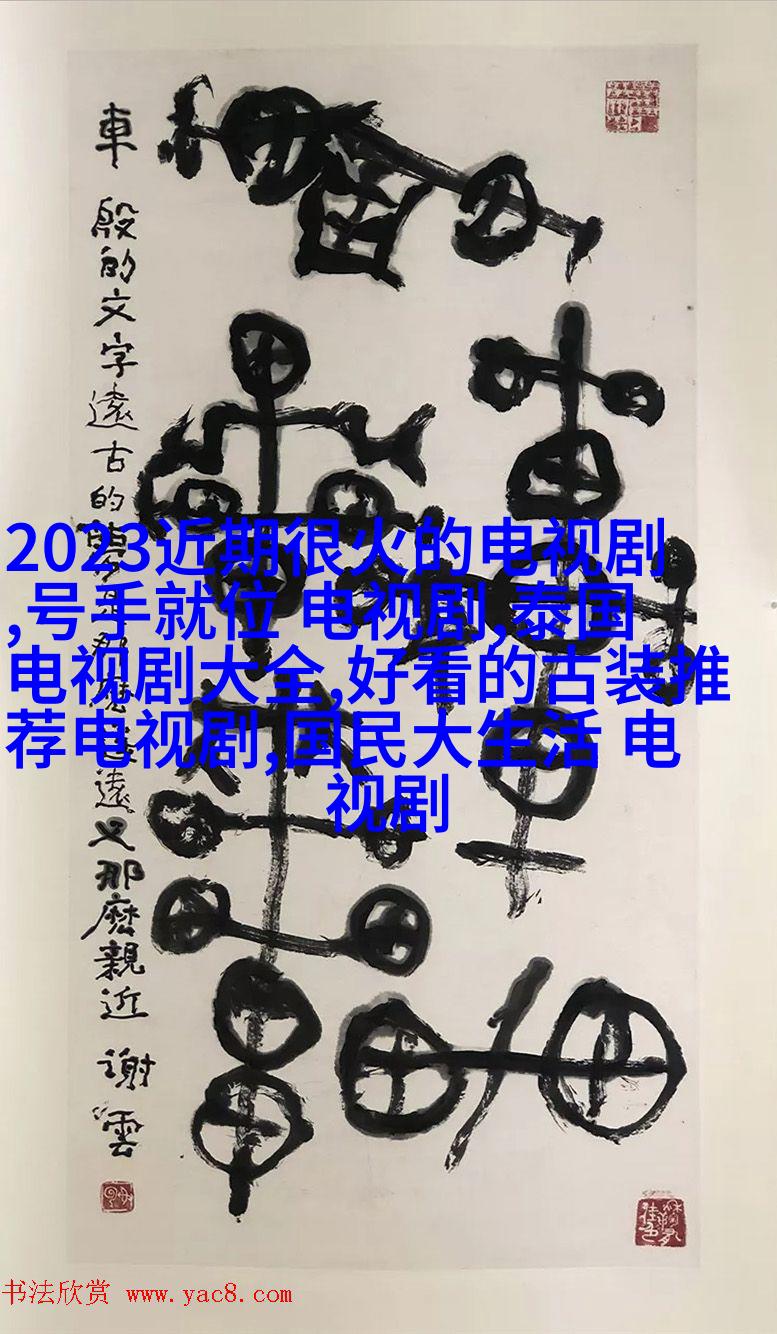 車 殷的文字遠古的
那麽
遠又那麽親近 謝雲
2023近期很火的电视剧
,号手就位 电视剧,泰国
电视剧大全,好看的古装推
荐电视剧,国民大生活 电
视剧
书法欣赏 www.yac8.com